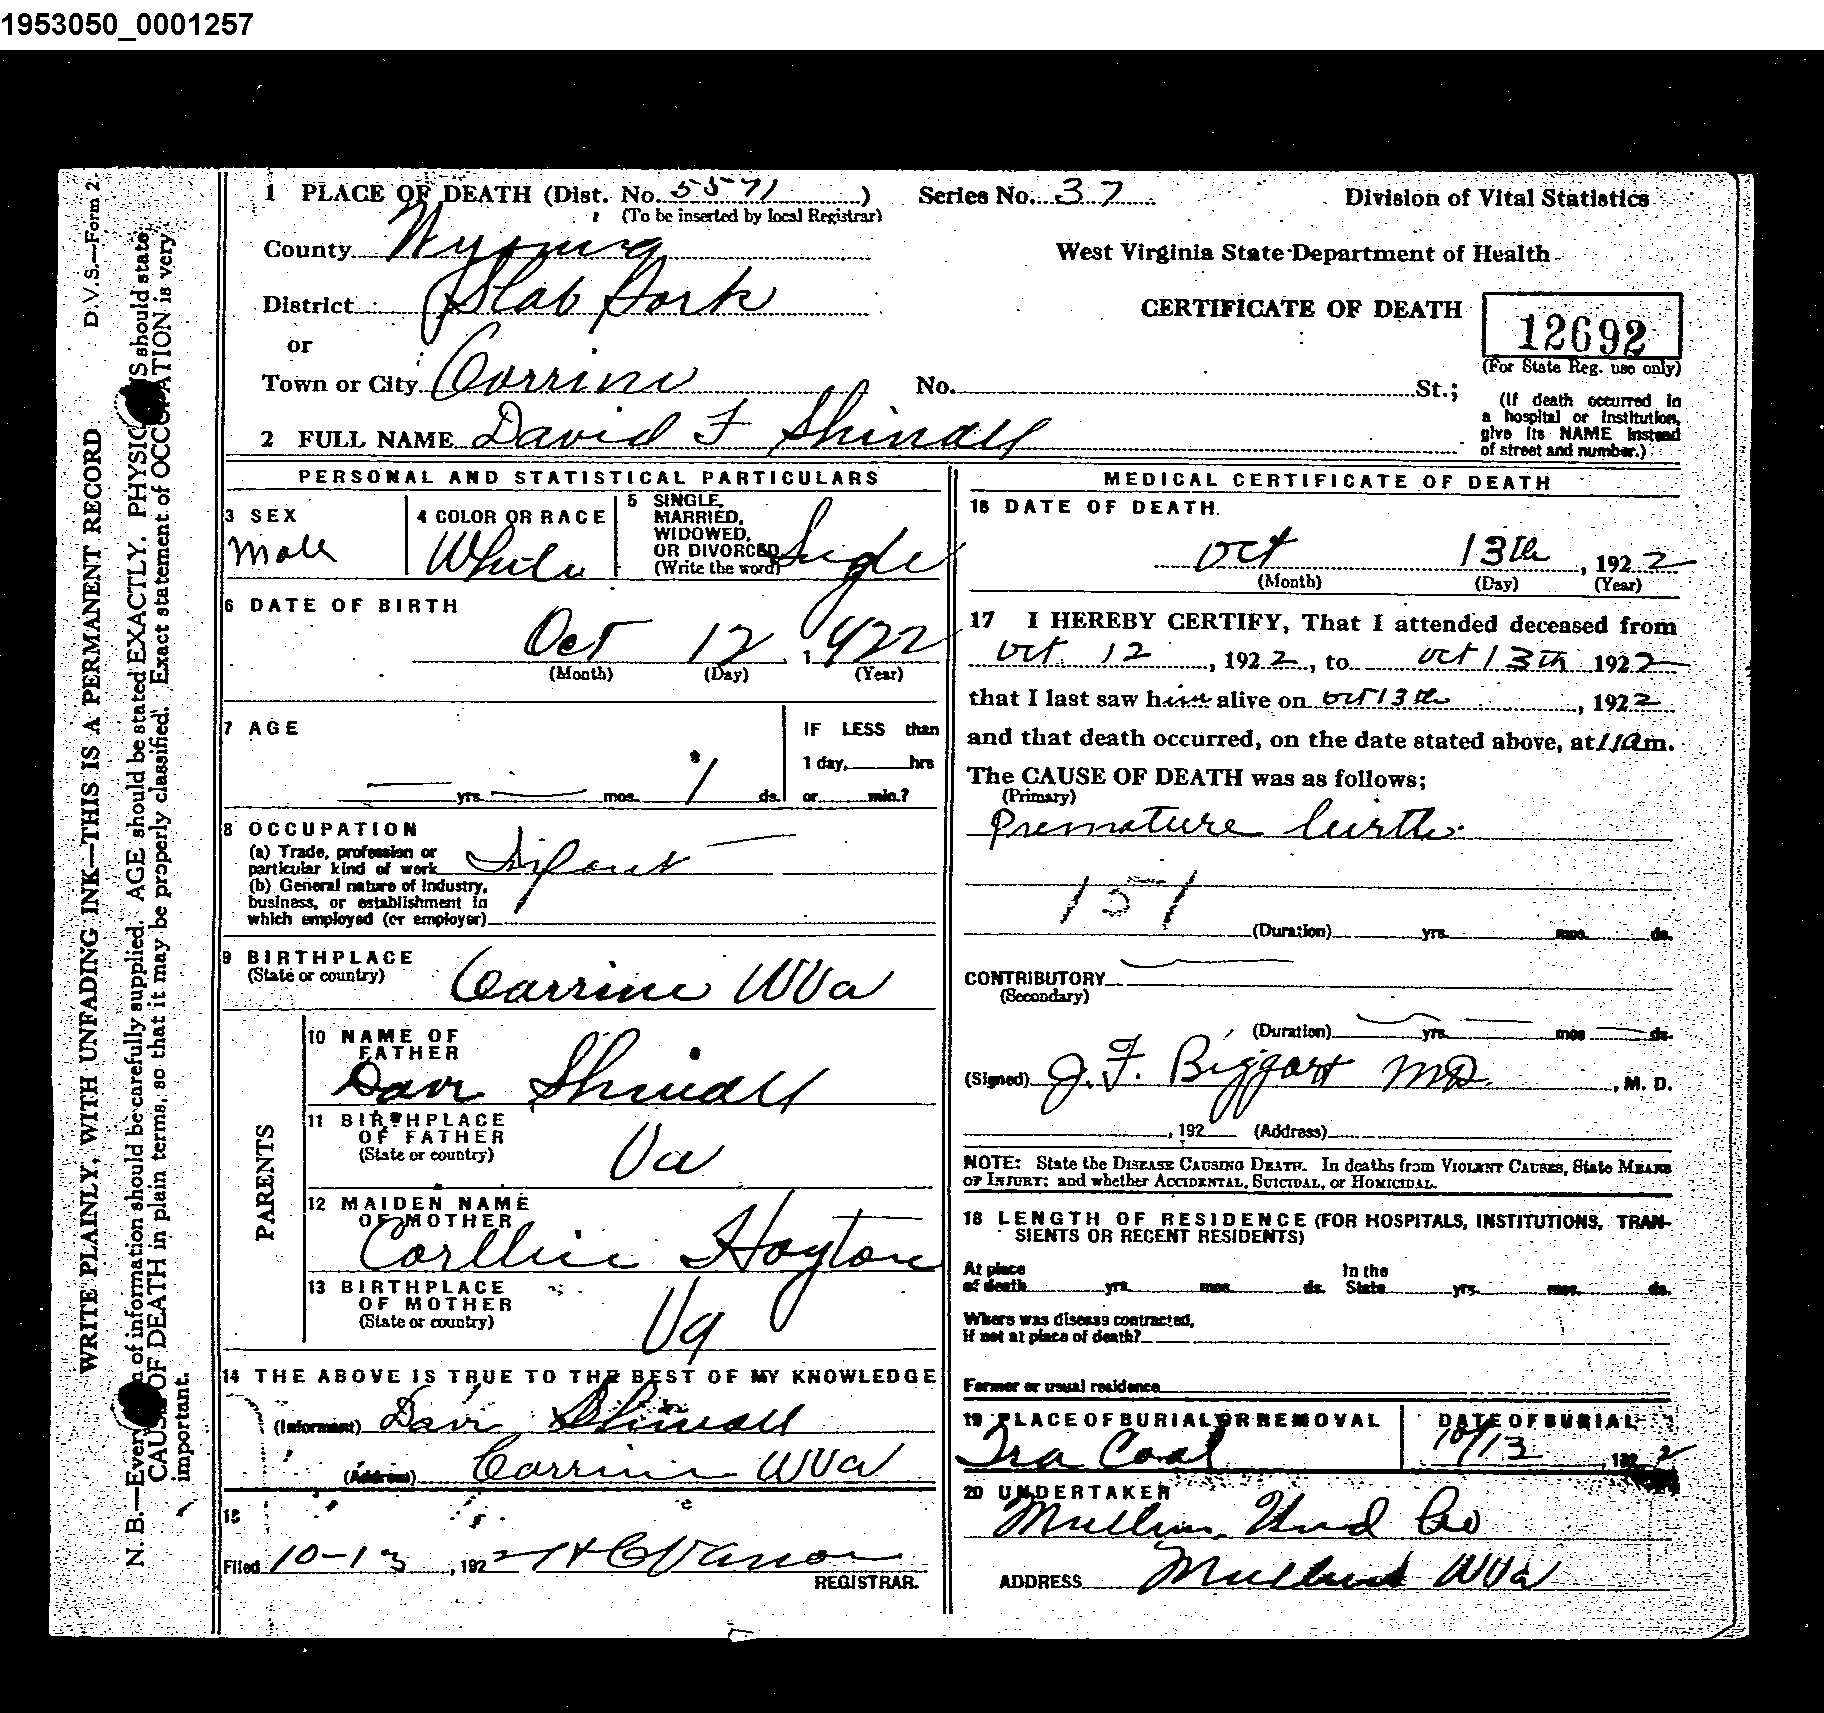 1953050_0001257
D.V.S.—Form 2.
WRITE PLAINLY, WITH UNFADING INK—THIS IS A PERMANENT RECORD
N. B.—Every of information should be carefully supplied. AGE should be stated EXACTLY. PHYSIC S should state
CAUSE OF DEATH in plain terms, so that it may be properly classified. Exact statement of OCCUPATION is very
important.
1 PLACE OF DEATH (Dist. No. 5571 )
(To be inserted by local Registrar)
Series No. 37
Division of Vital Statistics
County Wyoming
West Virginia State Department of Health
District Slab Fork
CERTIFICATE OF DEATH
12692
(For State Reg. use only)
or
Town or City Corrine
No. St.;
(If death occurred in
a hospital or institution,
give its NAME instead
of street and number.)
2 FULL NAME David F Shindll
PERSONAL AND STATISTICAL PARTICULARS
3 SEX
Male
4 COLOR OR RACE
White
5 SINGLE,
MARRIED,
WIDOWED,
OR DIVORCED
(Write the word) Single
6 DATE OF BIRTH
Oct 12, 1922
(Month) (Day) (Year)
7 AGE
yrs. mos. 1 ds.
IF LESS than
1 day, hrs
or min.?
8 OCCUPATION
(a) Trade, profession or
particular kind of work Infant
(b) General nature of Industry,
business, or establishment in
which employed (or employer)
9 BIRTHPLACE
(State or country) Corrine WVa
PARENTS
10 NAME OF
FATHER
Dave
11 BIRTHPLACE
OF FATHER
(State or country) Va
12 MAIDEN NAME
OF MOTHER
13 BIRTHPLACE
OF MOTHER
(State or country) Va
14 THE ABOVE IS TRUE TO THE BEST OF MY KNOWLEDGE
(Informant) Dave
(Address) Corrine WVa
15
Filed 10-13, 1922
REGISTRAR.
MEDICAL CERTIFICATE OF DEATH
16 DATE OF DEATH.
Oct 13th, 1922
(Month) (Day) (Year)
17 I HEREBY CERTIFY, That I attended deceased from
Oct 12, 1922, to Oct 13th 1922
that I last saw him alive on Oct 13th, 1922
and that death occurred, on the date stated above, at 11am.
The CAUSE OF DEATH was as follows;
(Primary)
Premature birth
151
(Duration) yrs. mos. ds.
CONTRIBUTORY
(Secondary)
(Duration) yrs. mos ds.
(Signed) J. F. Biggart MD. , M. D.
, 192 (Address)
NOTE: State the DISEASE CAUSING DEATH. In deaths from VIOLENT CAUSES, State MEANS
OF INJURY; and whether ACCIDENTAL, SUICIDAL, or HOMICIDAL.
18 LENGTH OF RESIDENCE (FOR HOSPITALS, INSTITUTIONS, TRAN-
SIENTS OR RECENT RESIDENTS)
At place
of death yrs. mos. ds.
In the
State yrs. mos. ds.
Where was disease contracted,
if not at place of death?
Former or usual residence
19 PLACE OF BURIAL OR REMOVAL
DATE OF BURIAL
Tra Coal
10/13, 1922
20 UNDERTAKER
Mullins Und Co
ADDRESS Mullins WVa